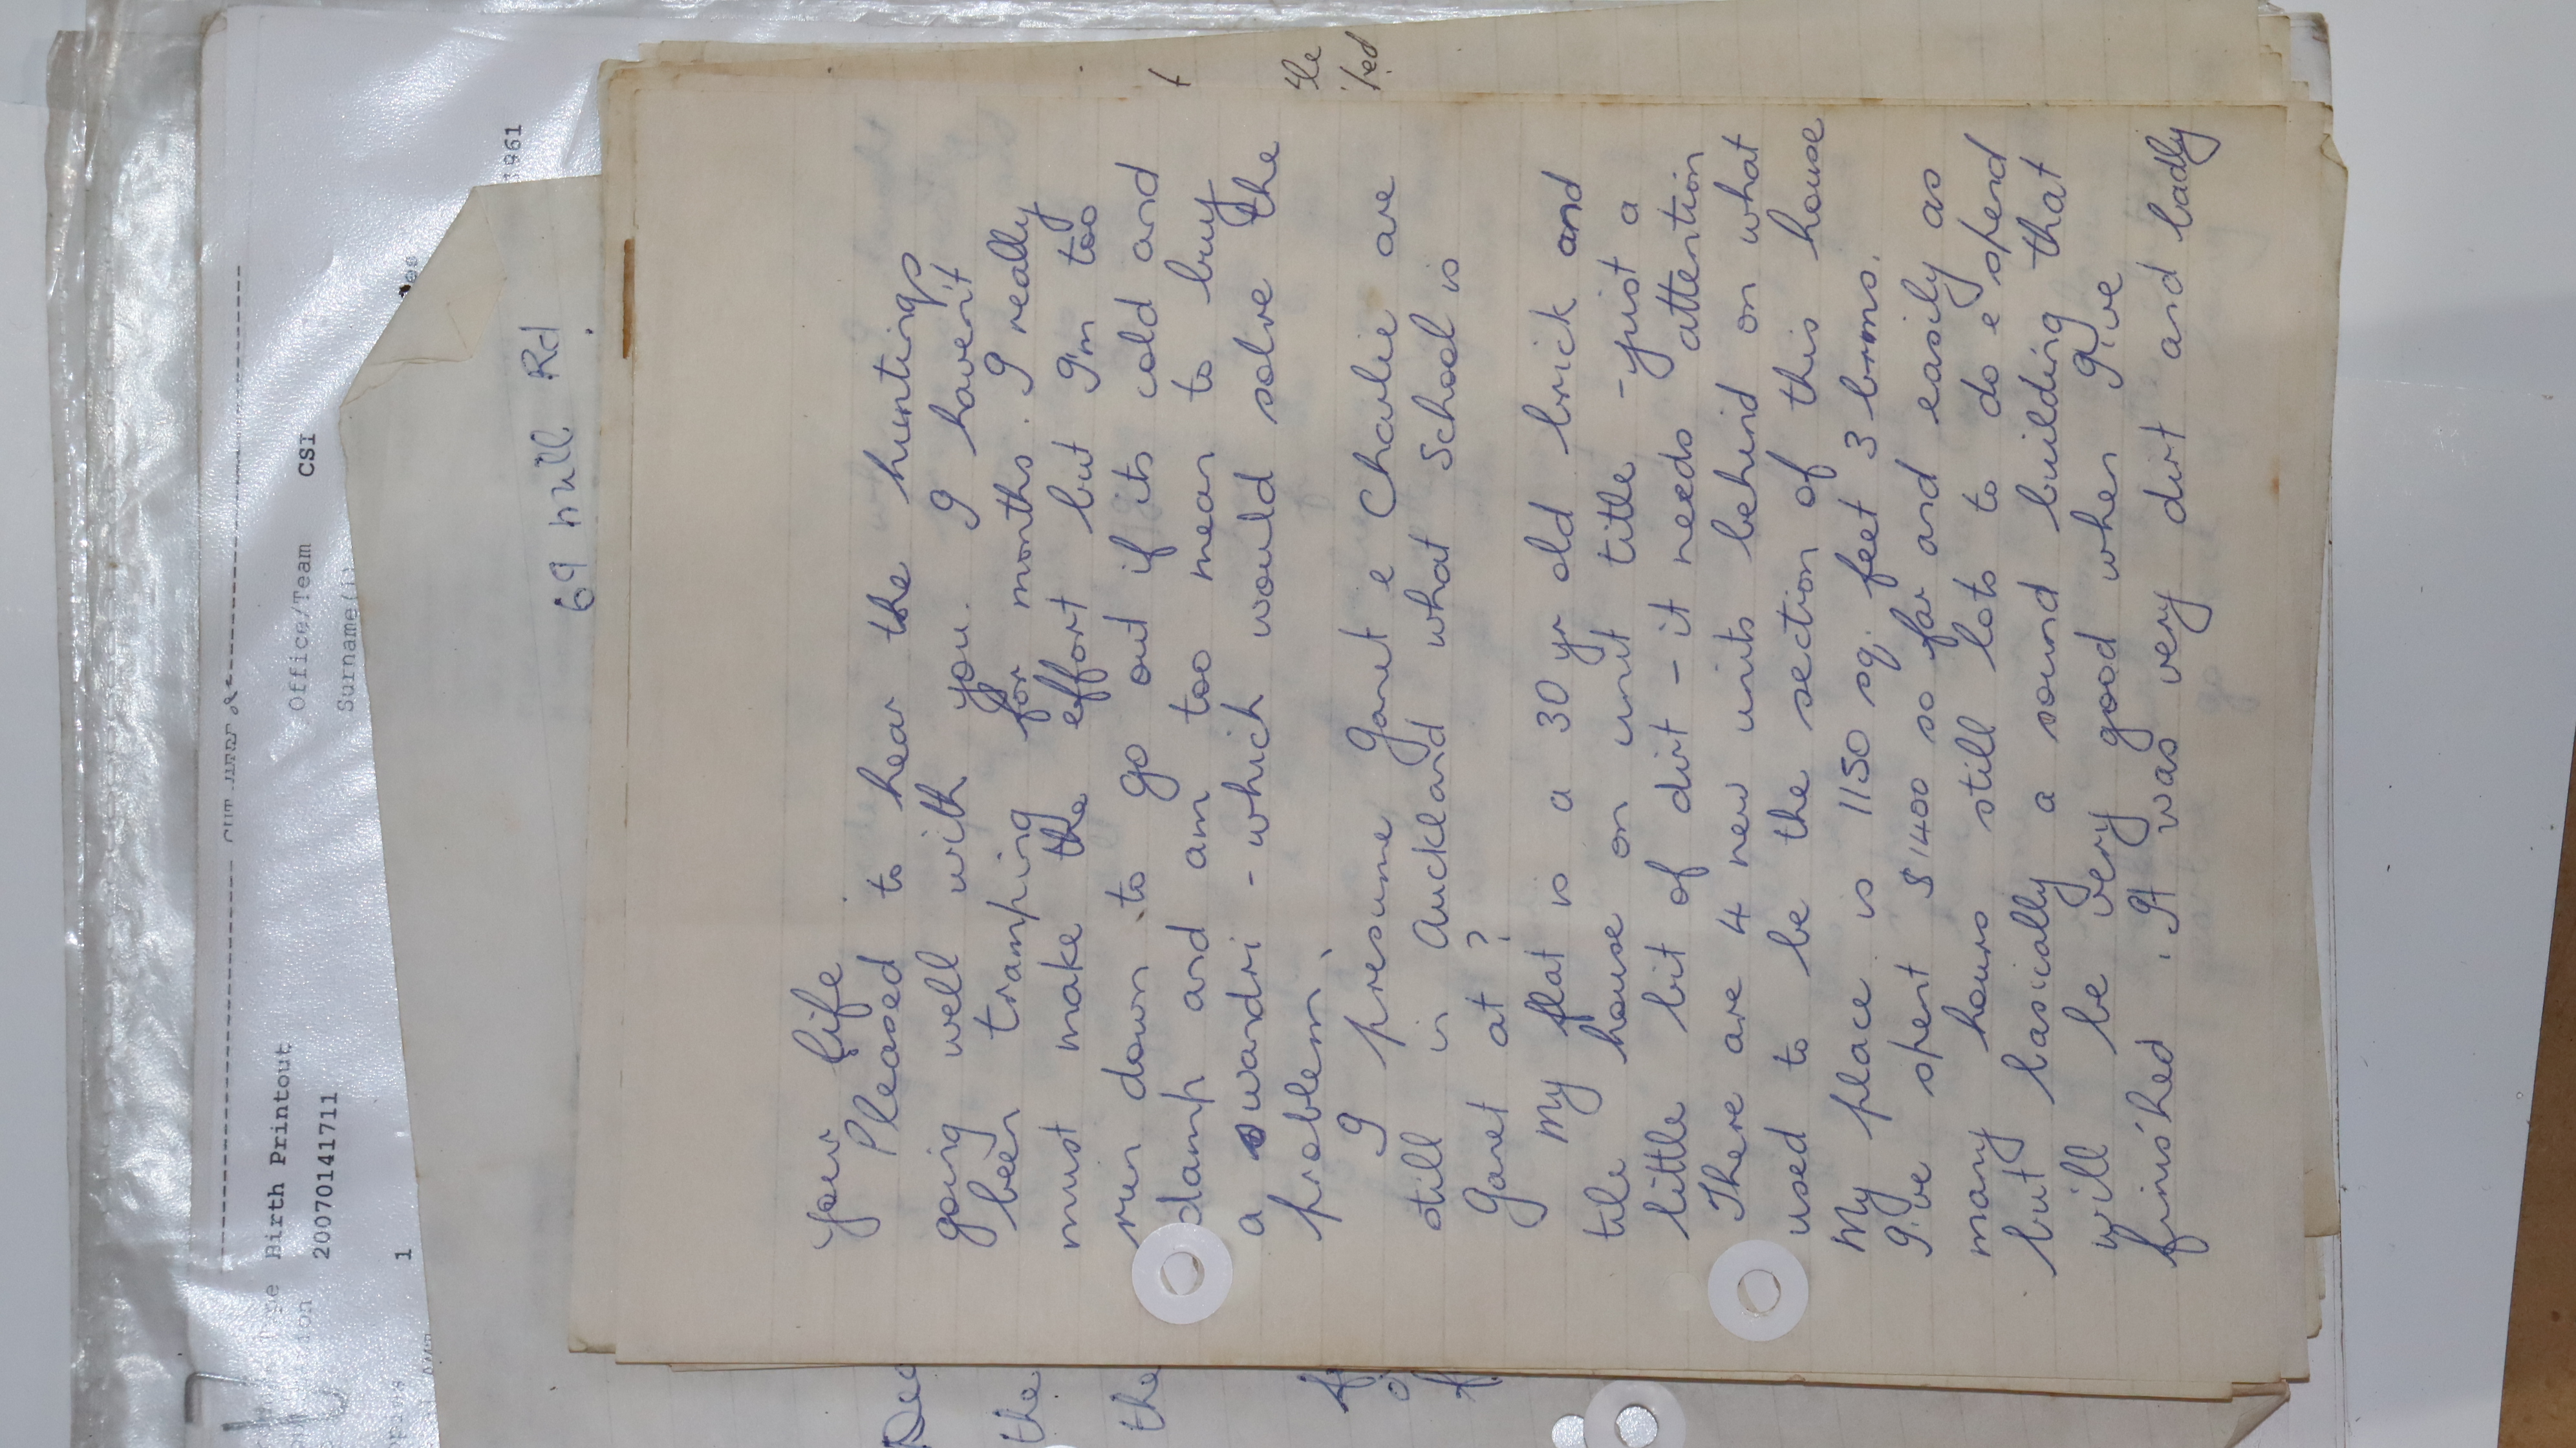 Birth Printout
2007014 1711
1
Office/Team CSI
Surname(s)
1961
69 Mill Rd
your life
Pleased to hear the huntings
going well with you. I haven't
been tramping for months. I really
must make the effort but I'm too
run down to go out if its cold and
damp and am too mean to buy
a swandri - which would solve the
problem.
I presume Ganet e Charlie are
still in Auckland what School is
Ganet at?
My flat is a 30 yr old brick and
tile house on unit title - just a
little bit of dirt - it needs attention
There are 4 new units behind on what
used to be the section of this house
My place is 1150 sq. feet 3 brms.
I've spent $1400 so far and easily as
many hours still lots to do e spend
but basically a sound building that
will be very good when I've
finished. It was very dirt and badly
Dee
the
the
t
the